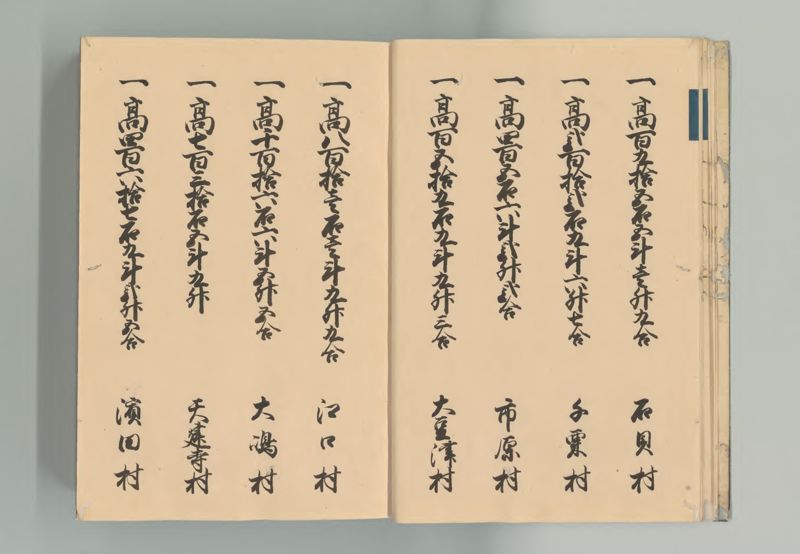 一 高百九拾五石五斗壱升九合 石貝村
一 高弐百拾弐石九斗六升七合 千栗村
一 高四百五石六斗弐升弐合 市原村
一 高百五拾九石九斗九升三合 大豆津村
一 高八百拾壱石壱斗九升九合 江口村
一 高千百拾六石六斗五升五合 大嶋村
一 高七百三拾石五斗九升 天建寺村
一 高四百六拾七石九斗弐升五合 濱田村